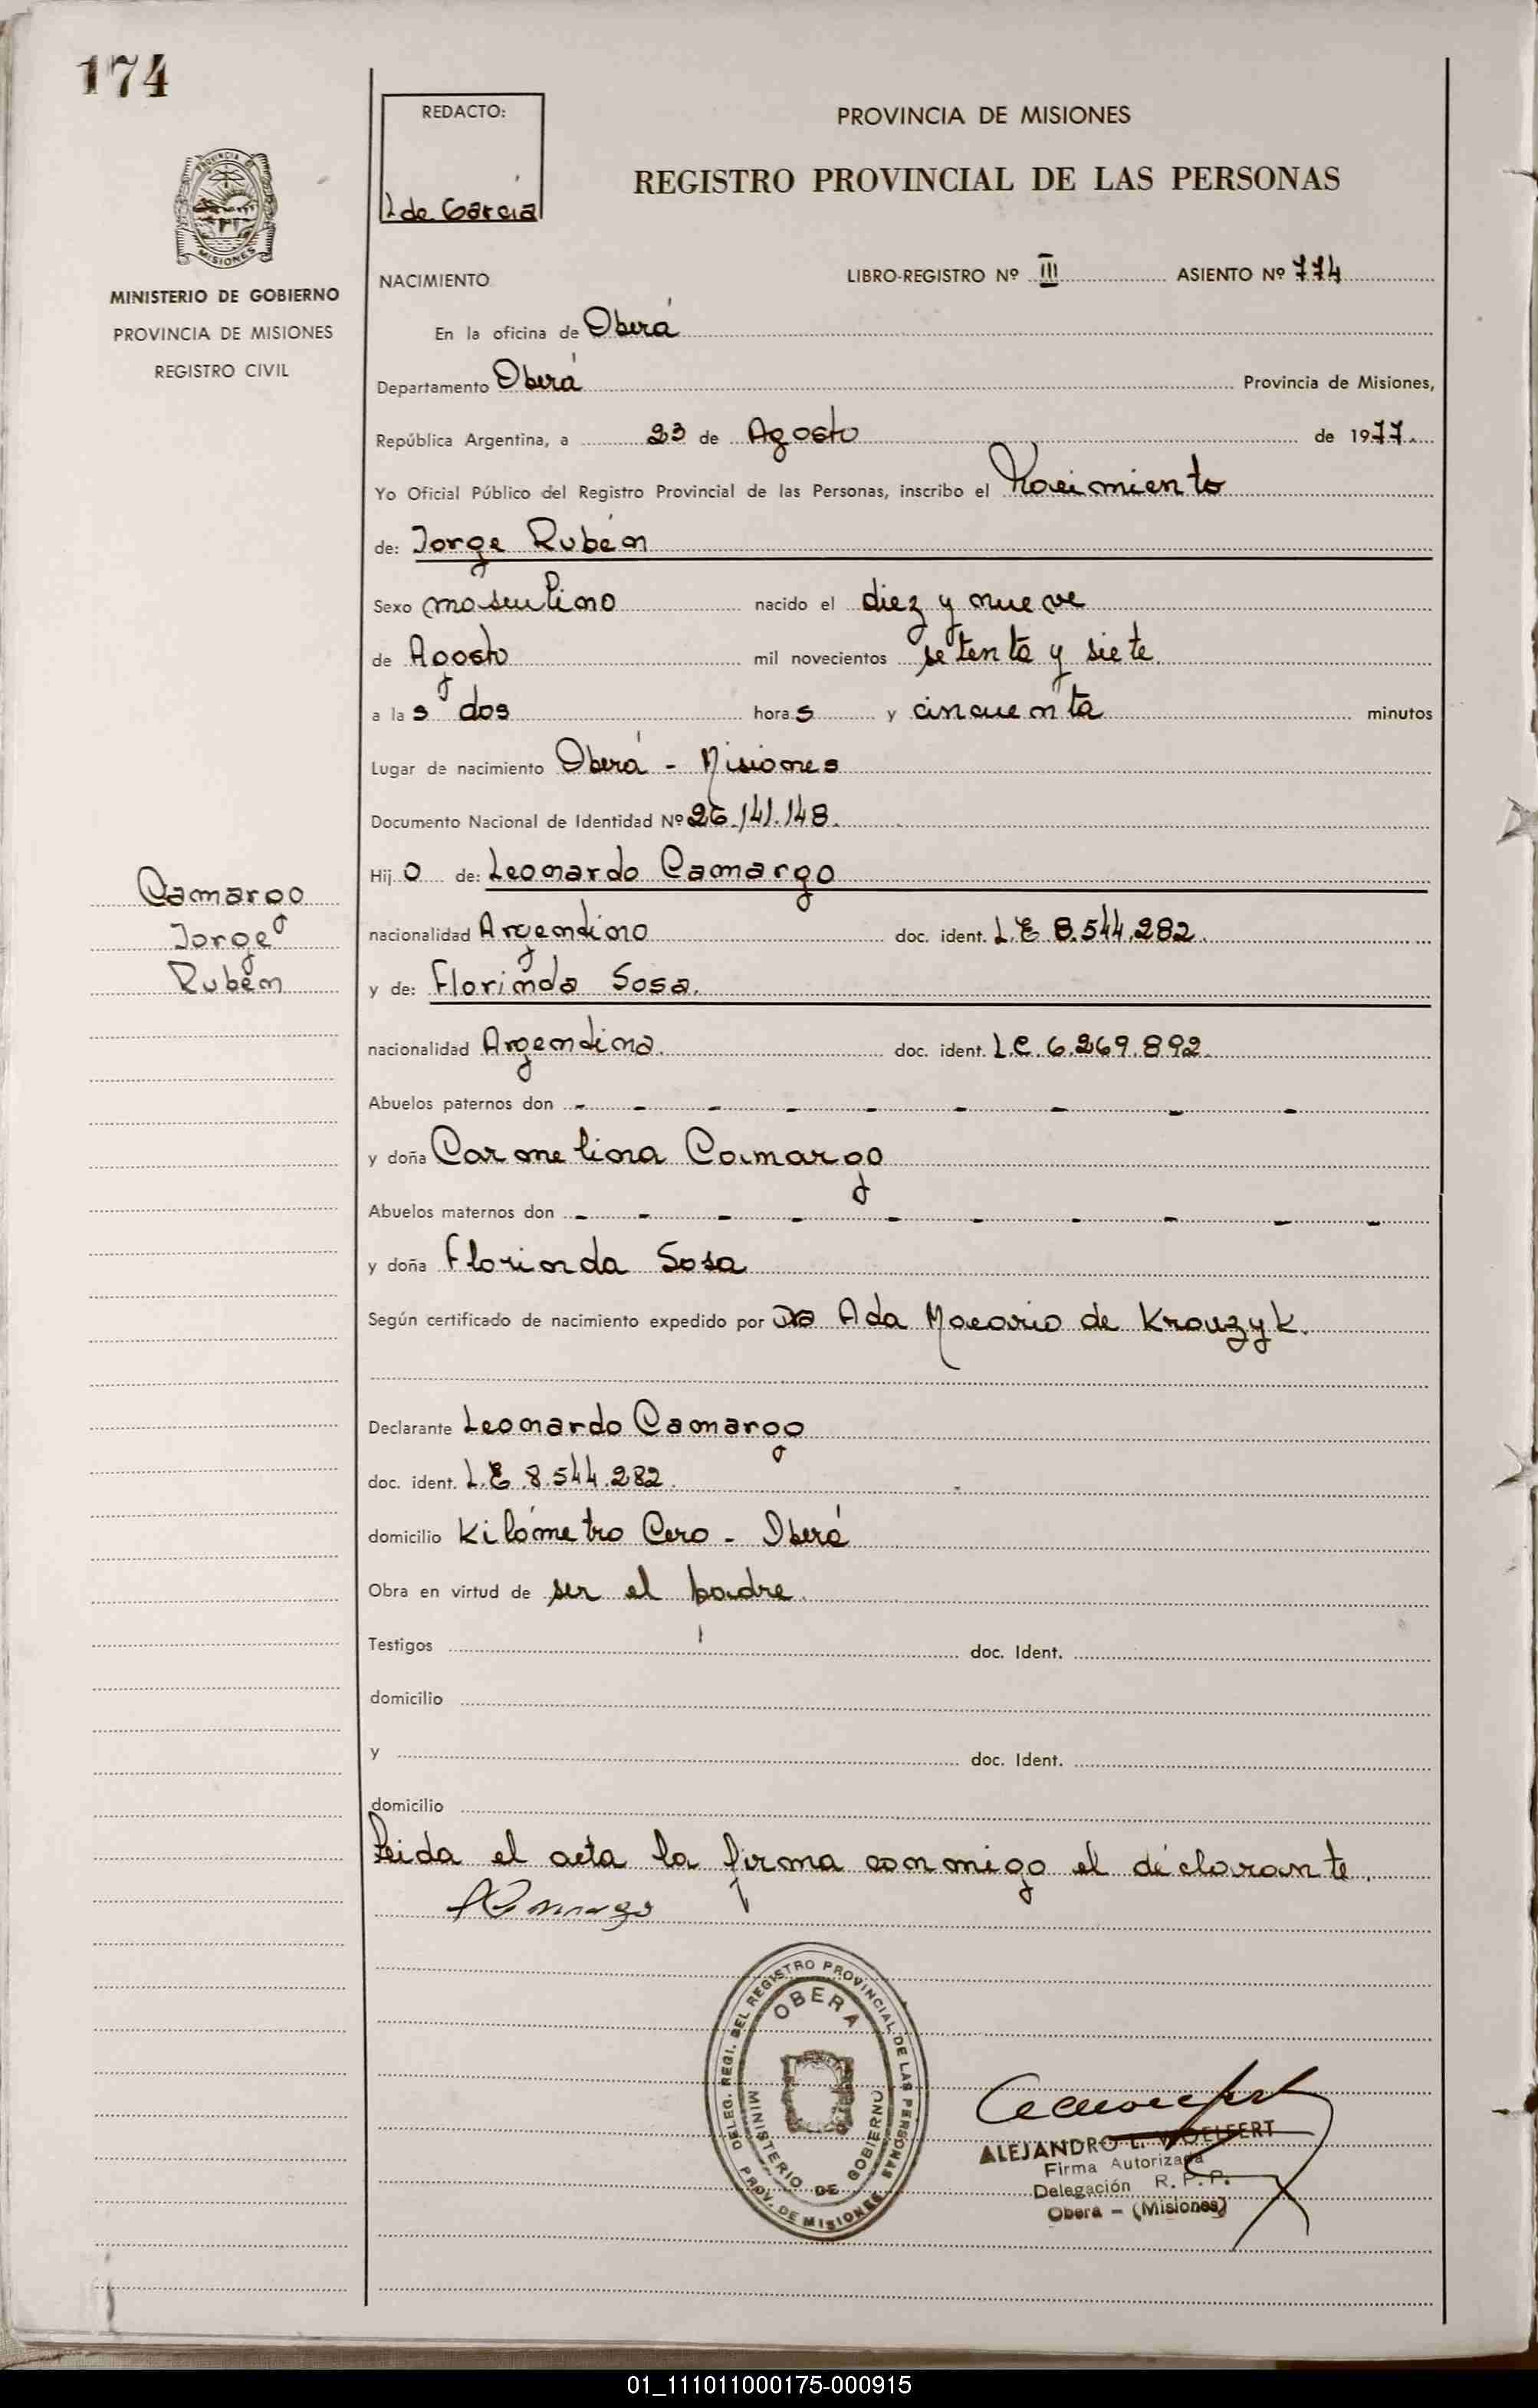 174
REDACTO:
L de Garcia
PROVINCIA DE MISIONES
REGISTRO PROVINCIAL DE LAS PERSONAS
PROVINCIA DE
MISIONES
MINISTERIO DE GOBIERNO
PROVINCIA DE MISIONES
REGISTRO CIVIL
NACIMIENTO LIBRO-REGISTRO Nº III ASIENTO Nº 774
En la oficina de Oberá
Departamento Oberá Provincia de Misiones,
República Argentina, a 23 de Agosto de 1977.
Yo Oficial Público del Registro Provincial de las Personas, inscribo el Nacimiento
de: Jorge Rubén
Sexo masculino nacido el diez y nueve
de Agosto mil novecientos setenta y siete
a las dos horas y cincuenta minutos
Lugar de nacimiento Oberá - Misiones
Documento Nacional de Identidad Nº 26.141.148.
Hijo de: Leonardo Camargo
Camargo
Jorge
Rubén
nacionalidad Argentino doc. ident. L.E 8.544.282.
y de: Florinda Sosa.
nacionalidad Argentina. doc. ident. L.C. 6.269.892.
Abuelos paternos don - - - - - - - - -
y doña Carmelina Camargo
Abuelos maternos don - - - - - - - - - -
y doña Florinda Sosa
Según certificado de nacimiento expedido por Dra Ada Macario de Krouzyk.
Declarante Leonardo Camargo
doc. ident. L.E. 8.544.282.
domicilio Kilómetro Cero - Oberá
Obra en virtud de ser el padre.
Testigos doc. Ident.
domicilio
y doc. Ident.
domicilio
Leida el acta la firma conmigo el declarante.
DELEG. REGI. DEL REGISTRO PROVINCIAL DE LAS PERSONAS
OBERA
MINISTERIO DE GOBIERNO
PROV. DE MISIONES
ALEJANDRO L. WOELFERT
Firma Autorizada
Delegación R. P. P.
Obera - (Misiones)
01_111011000175-000915